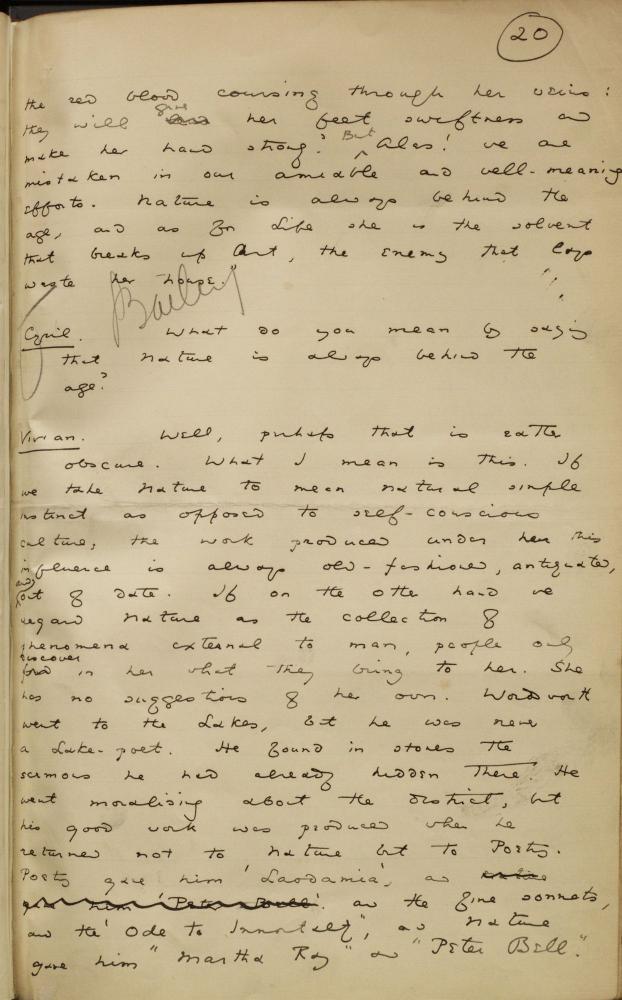 20
the red blood coursing through her veins:
they will give her feet swiftness and
make her hand strong? But Alas! we are
mistaken in our amiable and well-meaning
efforts. Nature is always behind the
age, and as for Life she is the solvent
that breaks up Art, the enemy that lays
waste her house."
Bailey
Cyril. What do you mean by saying
that nature is always behind the
age?
Vivian. Well, perhaps that is rather
obscure. What I mean is this. If
we take nature to mean natural simple
instinct as opposed to self-conscious
culture, the work produced under her this
influence is always old-fashioned, antiquated,
and out of date. If on the other hand we
regard nature as the collection of
phenomena external to man, people only
discover in her what they bring to her. She
has no suggestions of her own. Wordsworth
went to the Lakes, but he was never
a Lake-poet. He found in stones the
sermons he had already hidden there. He
went moralising about the district, but
his good work was produced when he
returned not to nature but to Poetry.
Poetry gave him 'Laodamia', and
gave him 'Peter Bell'. and the fine sonnets,
and the 'Ode to Immortality", as nature
gave him "Martha Ray" and "Peter Bell."